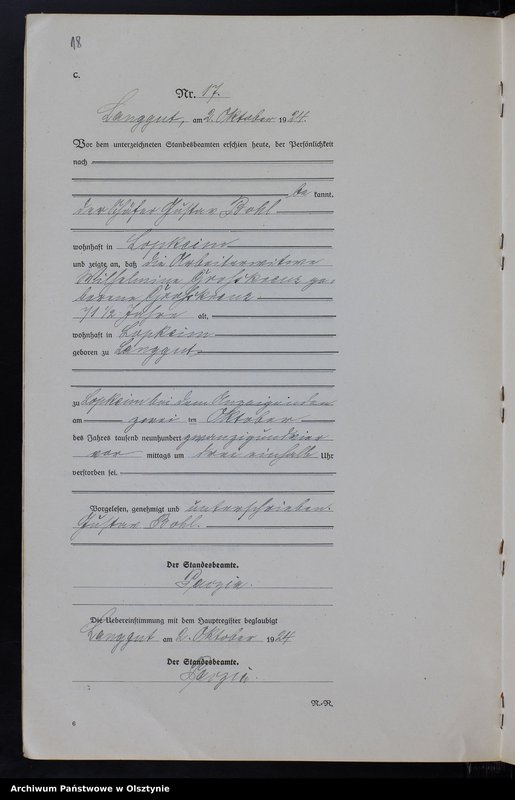 18
C.
Nr. 17.
Langgut, am 2. Oktober 1924.
Vor dem unterzeichneten Standesbeamten erschien heute, der Persönlichkeit
nach
be kannt,
der Schäfer Gustav Bohl
wohnhaft in Lopkeim
und zeigte an, daß die Arbeiterwitwe
Wilhelmine Großkreuz ge-
borene Großkreuz
71 1/2 Jahre alt,
wohnhaft in Lopkeim
geboren zu Langgut
zu Lopkeim bei dem Anzeigenden
am zwei ten Oktober
des Jahres tausend neunhundert zwanzigundvier
vor mittags um drei einhalb Uhr
verstorben sei.
Vorgelesen, genehmigt und unterschrieben.
Gustav Bohl.
Der Standesbeamte.
Die Uebereinstimmung mit dem Hauptregister beglaubigt
Langgut am 2. Oktober 1924
Der Standesbeamte.
N.-R.
6
Archiwum Państwowe w Olsztynie